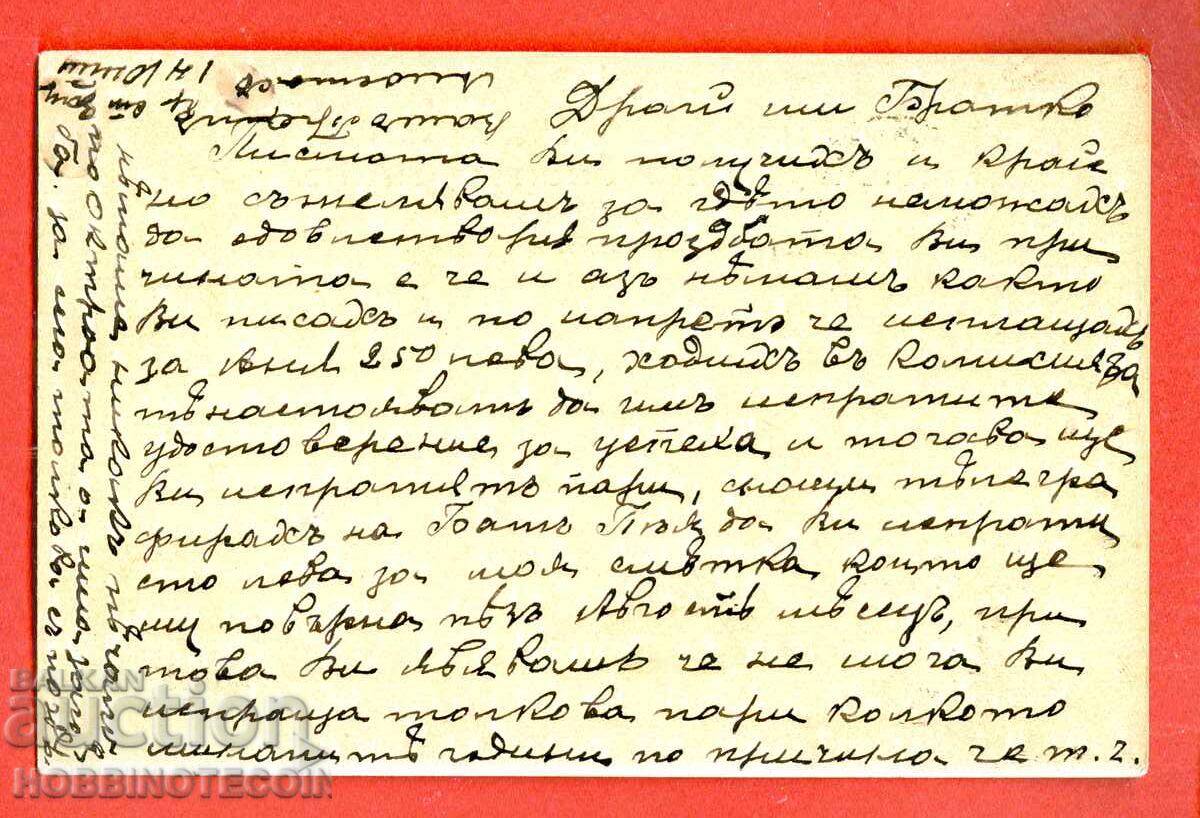 Драгий ми Братко
Писмата Ви получихъ и край
но съжелявамъ за гдѣто неможахъ
да одовлетворя прозбата Ви при
чината е че и азъ нѣмамъ както
Ви писахъ и по напретъ че исплащахъ
за 250 лева, ходихъ въ комисия за
тѣ настояватъ да имъ испратите
удостоверение за успеха и тогава ще
Ви испратятъ пари, снощи тѣлегра
фирахъ на Да Ви испрати
сто лева за моя смѣтка които ще
му повърна прѣзъ Августъ мѣсецъ, при
това Ви явявамъ че не мога Ви
испраща толкова пари колкото
миналитѣ години по причина че т. г.
нѣмаме никакъ
за сега толкова съ поздр.
BALKAN
auction
HOBBINOTECOIN